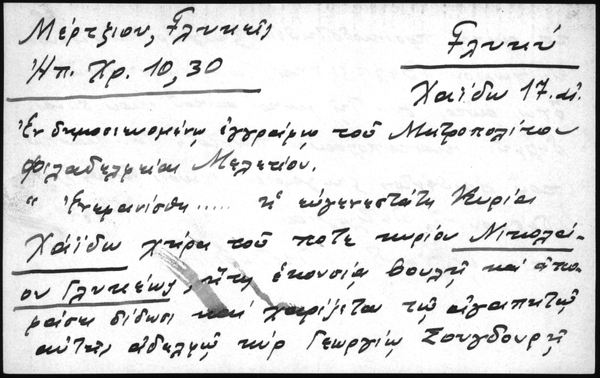 Μέρτζιου, Γλυκεῖς
Ἠπ. Χρ. 10, 30
Γλυκύ
Χαϊδω 17. αἰ.
Ἐν δημοσιευομένῳ ἐγγράφῳ τοῦ Μητροπολίτου
Φιλαδελφείας Μελετίου.
" Ἐνεφανίσθη ..... ἡ εὐγενεστάτη Κυρία
Χάϊδω χήρα τοῦ ποτε κυρίου Νικολά-
ου Γλυκέως, ἥτις ἑκουσίᾳ βουλῇ καὶ ἀπο-
φάσει δίδωσι καὶ χαρίζεται τῷ ἀγαπητῷ
αὐτῆς ἀδελφῷ κύρ Γεωργίῳ Σουγδουρῇ